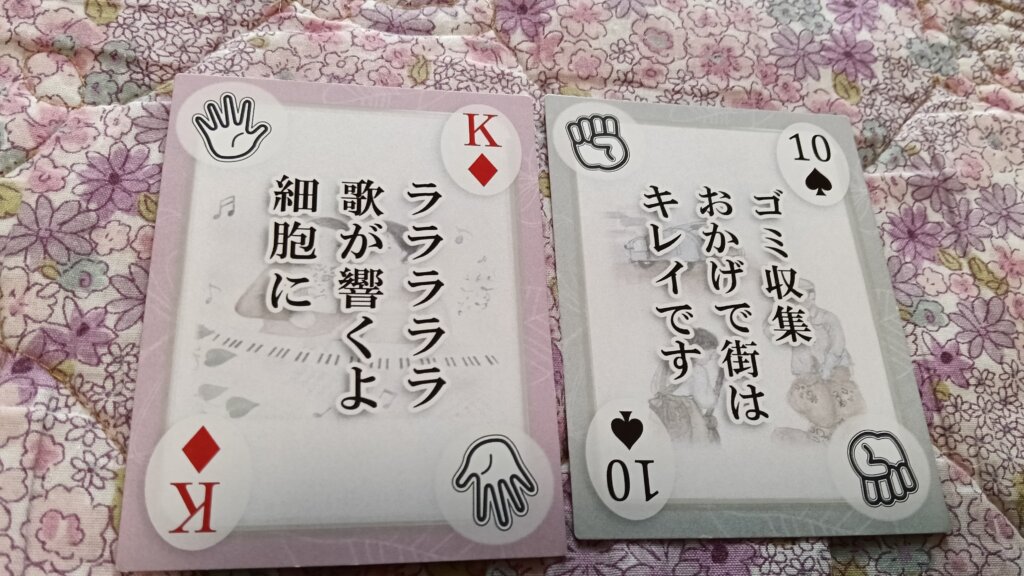 K
ララララララ
歌が響くよ
細胞に
K
10
ゴミ収集
おかげで街は
キレイです
10